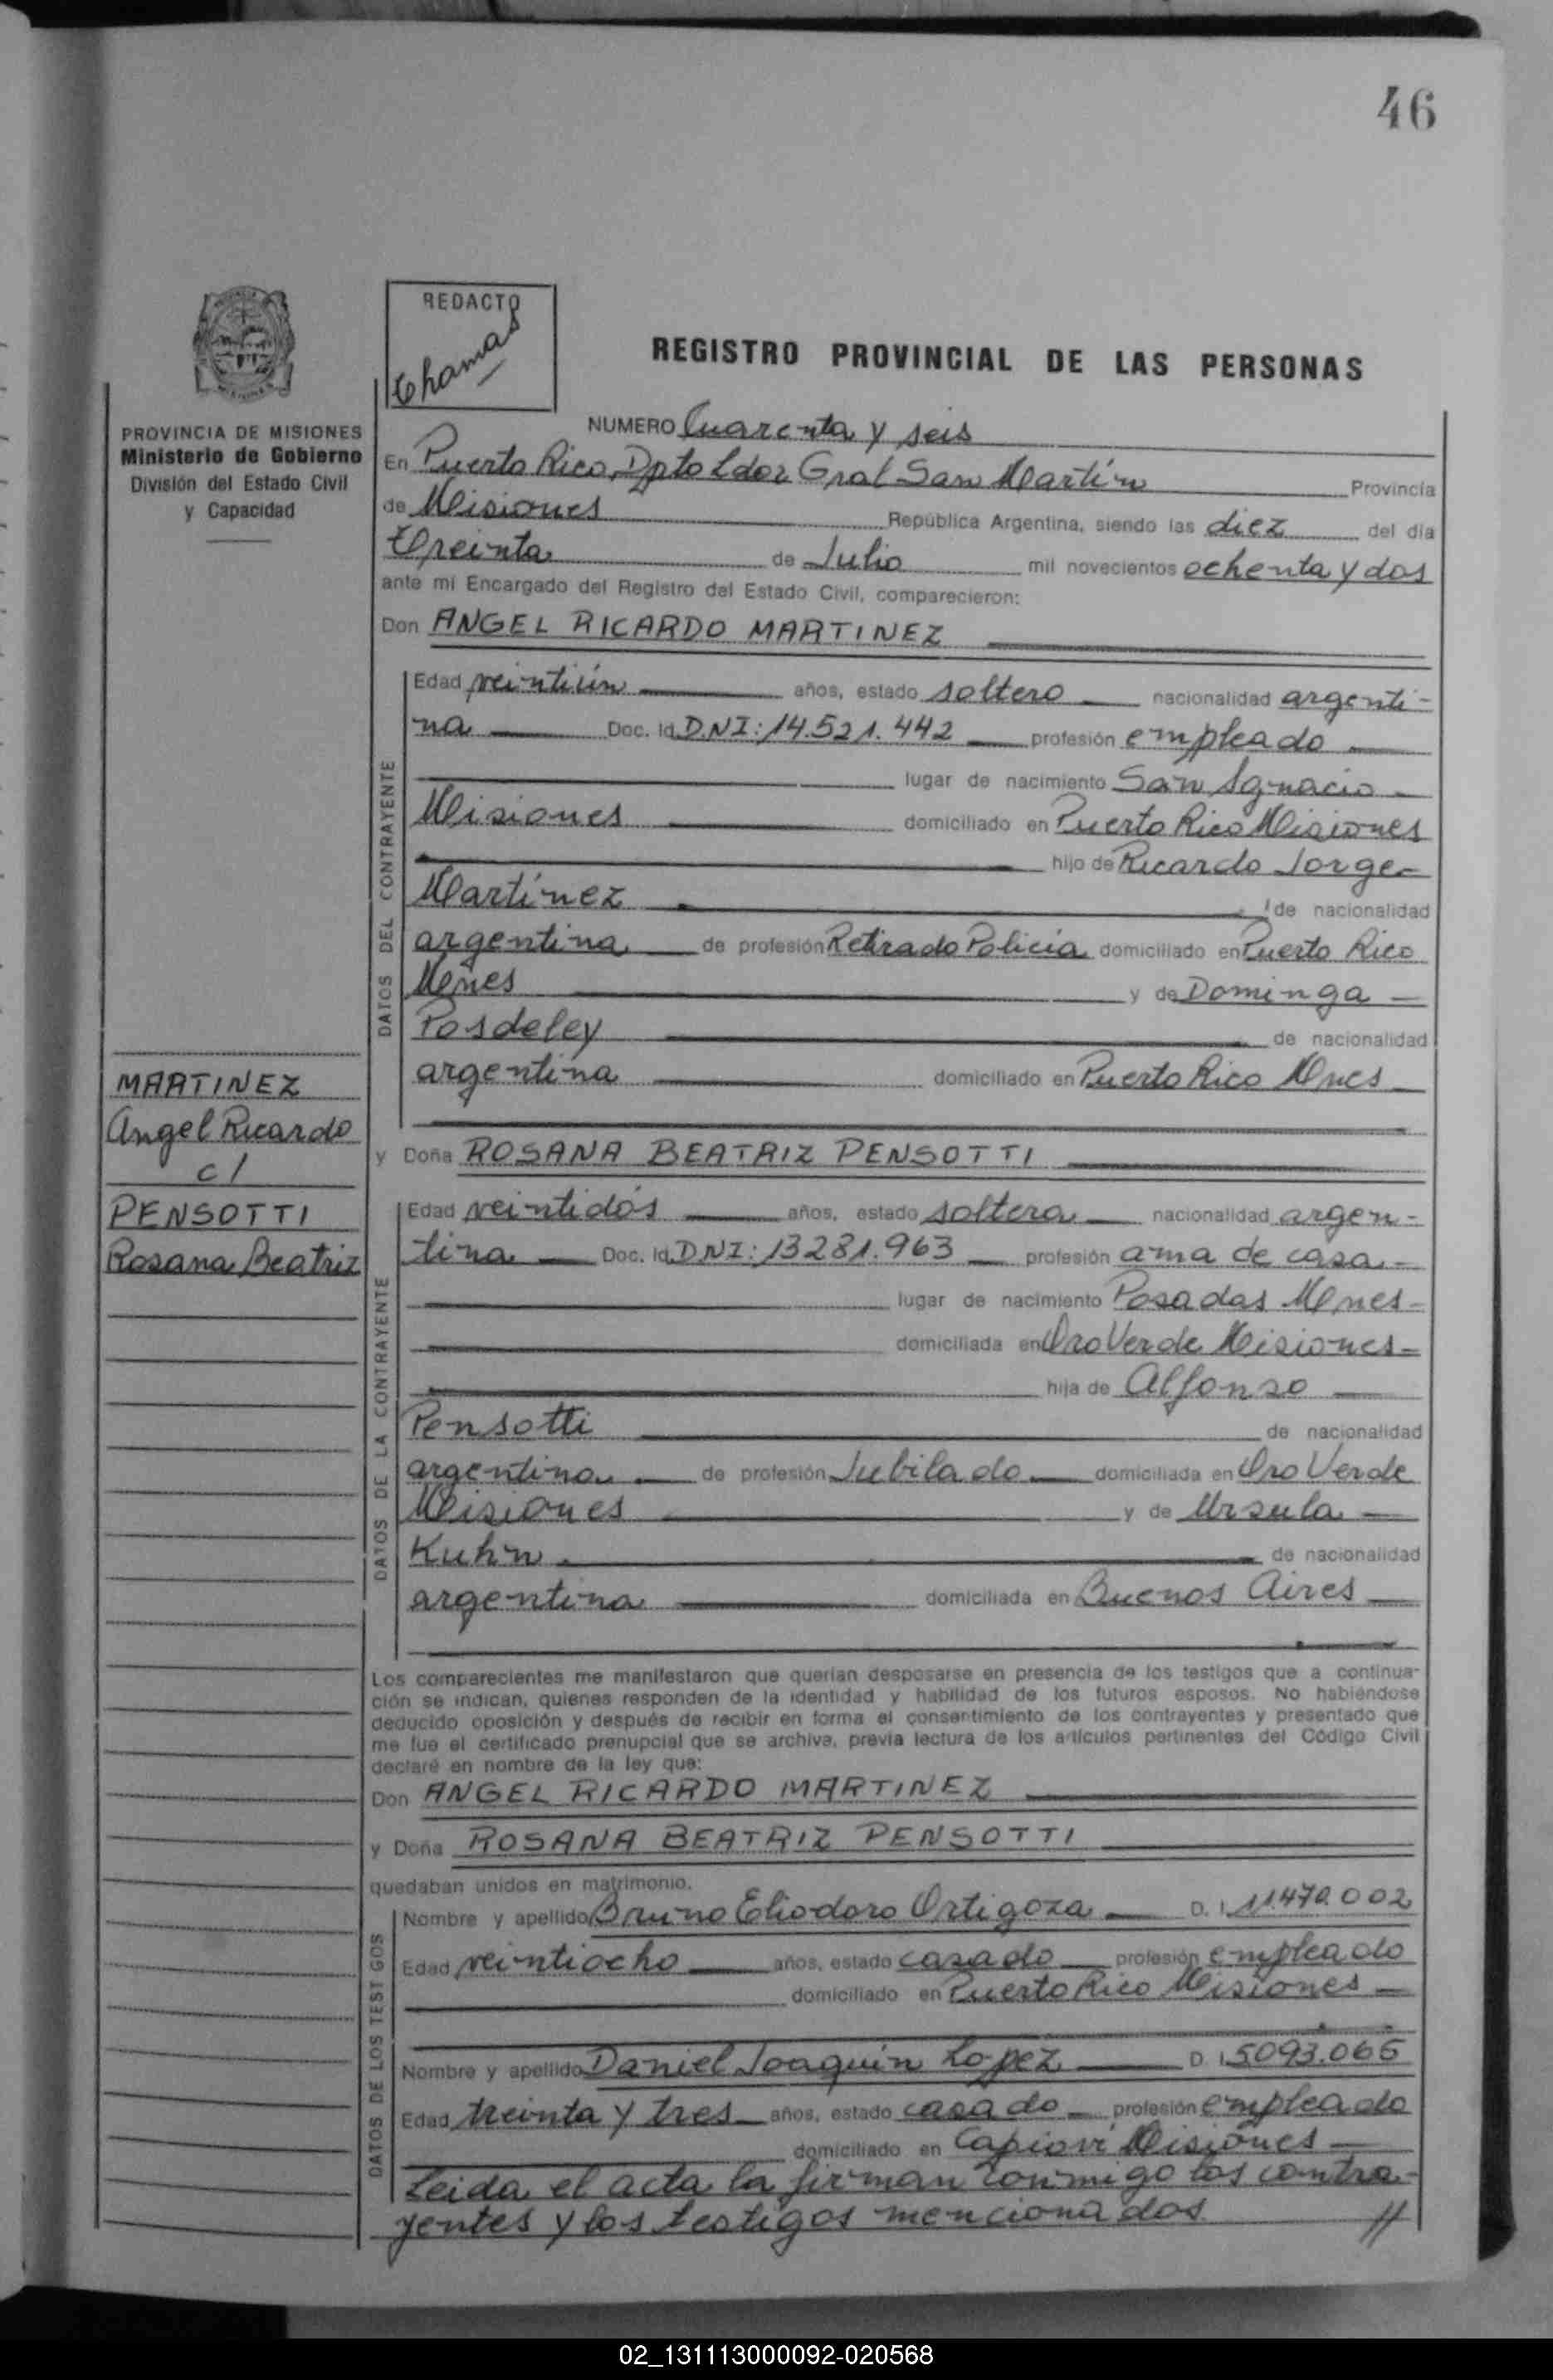 46
REDACTO
Chamas
REGISTRO PROVINCIAL DE LAS PERSONAS
PROVINCIA DE MISIONES
Ministerio de Gobierno
División del Estado Civil
y Capacidad
NUMERO Cuarenta y seis
En Puerto Rico, Dpto Ldor Gral San Martín Provincia
de Misiones República Argentina, siendo las diez del día
treinta de Julio mil novecientos ochenta y dos
ante mi Encargado del Registro del Estado Civil, comparecieron:
Don ANGEL RICARDO MARTINEZ
DATOS DEL CONTRAYENTE
Edad veintiún años, estado soltero nacionalidad argenti-
na Doc. Id. D.N.I: 14.521.442 profesión empleado
lugar de nacimiento San Ignacio
Misiones domiciliado en Puerto Rico Misiones
hijo de Ricardo Jorge
Martínez de nacionalidad
argentina de profesión Retirado Policia domiciliado en Puerto Rico
Mnes y de Dominga
Posdeley de nacionalidad
argentina domiciliado en Puerto Rico Mnes
MARTINEZ
Angel Ricardo
c/
PENSOTTI
Rosana Beatriz
y Doña ROSANA BEATRIZ PENSOTTI
DATOS DE LA CONTRAYENTE
Edad veintidós años, estado soltera nacionalidad argen-
tina Doc. Id. DNI: 13281.963 profesión ama de casa
lugar de nacimiento Posadas Mnes
domiciliada en Oro Verde Misiones
hija de Alfonso
Pensotti de nacionalidad
argentina de profesión Jubilado domiciliada en Oro Verde
Misiones y de Ursula
Kuhn de nacionalidad
argentina domiciliada en Buenos Aires
Los comparecientes me manifestaron que querían desposarse en presencia de los testigos que a continua-
ción se indican, quienes responden de la identidad y habilidad de los futuros esposos. No habiéndose
deducido oposición y después de recibir en forma el consentimiento de los contrayentes y presentado que
me fue el certificado prenupcial que se archiva, previa lectura de los artículos pertinentes del Código Civil
declaré en nombre de la ley que:
Don ANGEL RICARDO MARTINEZ
y Doña ROSANA BEATRIZ PENSOTTI
quedaban unidos en matrimonio.
DATOS DE LOS TESTIGOS
Nombre y apellido Bruno Eliodoro Ortigoza D. I. 11.470.002
Edad veintiocho años, estado casado profesión empleado
domiciliado en Puerto Rico Misiones
Nombre y apellido Daniel Joaquín Lopez D. I. 5093.065
Edad treinta y tres años, estado casado profesión empleado
domiciliado en Capioví Misiones
Leida el acta la firman conmigo los contra-
yentes y los testigos mencionados //
02_131113000092-020568